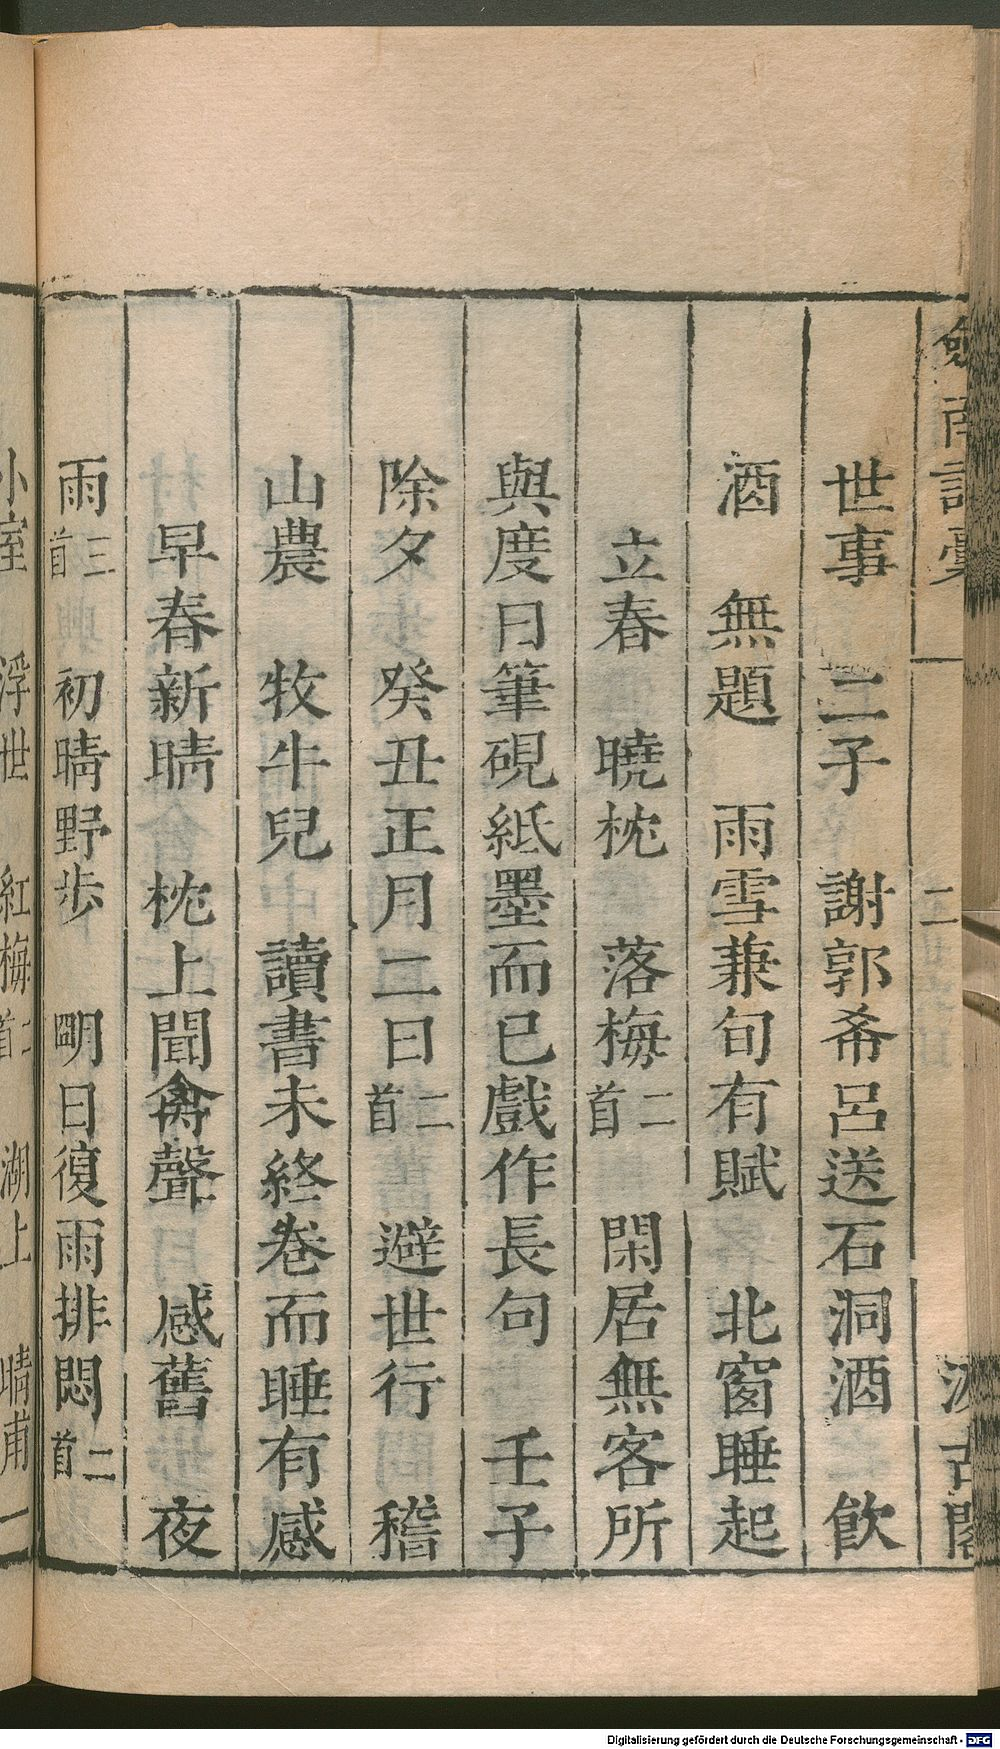 世事　二子　謝郭希呂送石洞酒　飲
酒　無題　雨雪兼旬有賦　北窗睡起
立春　曉枕　落梅二首　閑居無客所
與度日筆硯紙墨而已戲作長句　壬子
除夕　癸丑正月二日二首　避世行　稽
山農　牧牛兒　讀書未終卷而睡有感
早春新晴　枕上聞禽聲　感舊　夜
雨三首　初晴野歩　明日復雨排悶二首
小室　浮世　紅梅二首　湖上　晴甫
Digitalisierung gefördert durch die Deutsche Forschungsgemeinschaft - DFG